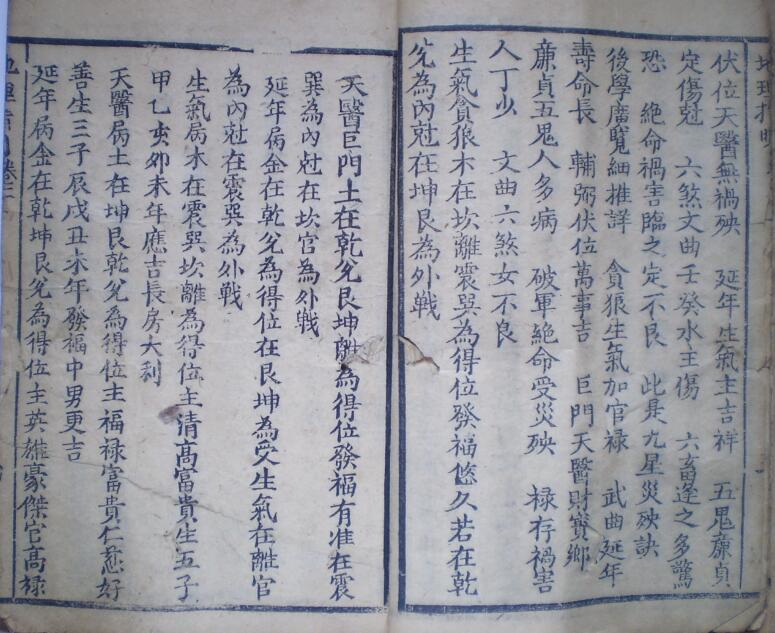 伏位天醫無禍殃　延年生氣主吉祥　五鬼廉貞
定傷尅　六煞文曲壬癸水主傷　六畜逢之多驚
恐　絶命禍害臨之定不良　此是九星災殃訣
後學廣覽細推詳　貪狼生氣加官禄　武曲延年
壽命長　輔弼伏位萬事吉　巨門天醫財寳鄉
廉貞五鬼人多病　破軍絶命受災殃　禄存禍害
人丁少　文曲六煞女不良
生氣貪狼木在坎離震巽為得位發福悠久若在乾
兊為內尅在坤艮為外戰
天醫巨門土在乾兊艮坤離為得位發福有准在震
巽為內尅在坎宫為外戰
延年病金在乾兊為得位在艮坤為受生氣在離官
為內尅在震巽為外戰
生氣病木在震巽坎離為得位主清高富貴生五子
甲乙亥卯未年應吉長房大利
天醫病土在坤艮乾兊為得位主福禄富貴仁慈好
善生三子辰戌丑未年發福中男更吉
延年病金在乾坤艮兊為得位主英雄豪傑官高禄